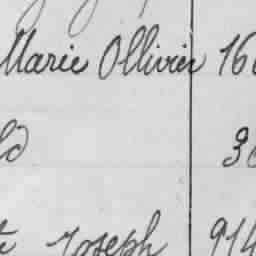 Marie Ollivier 16
ld 3
Joseph 914